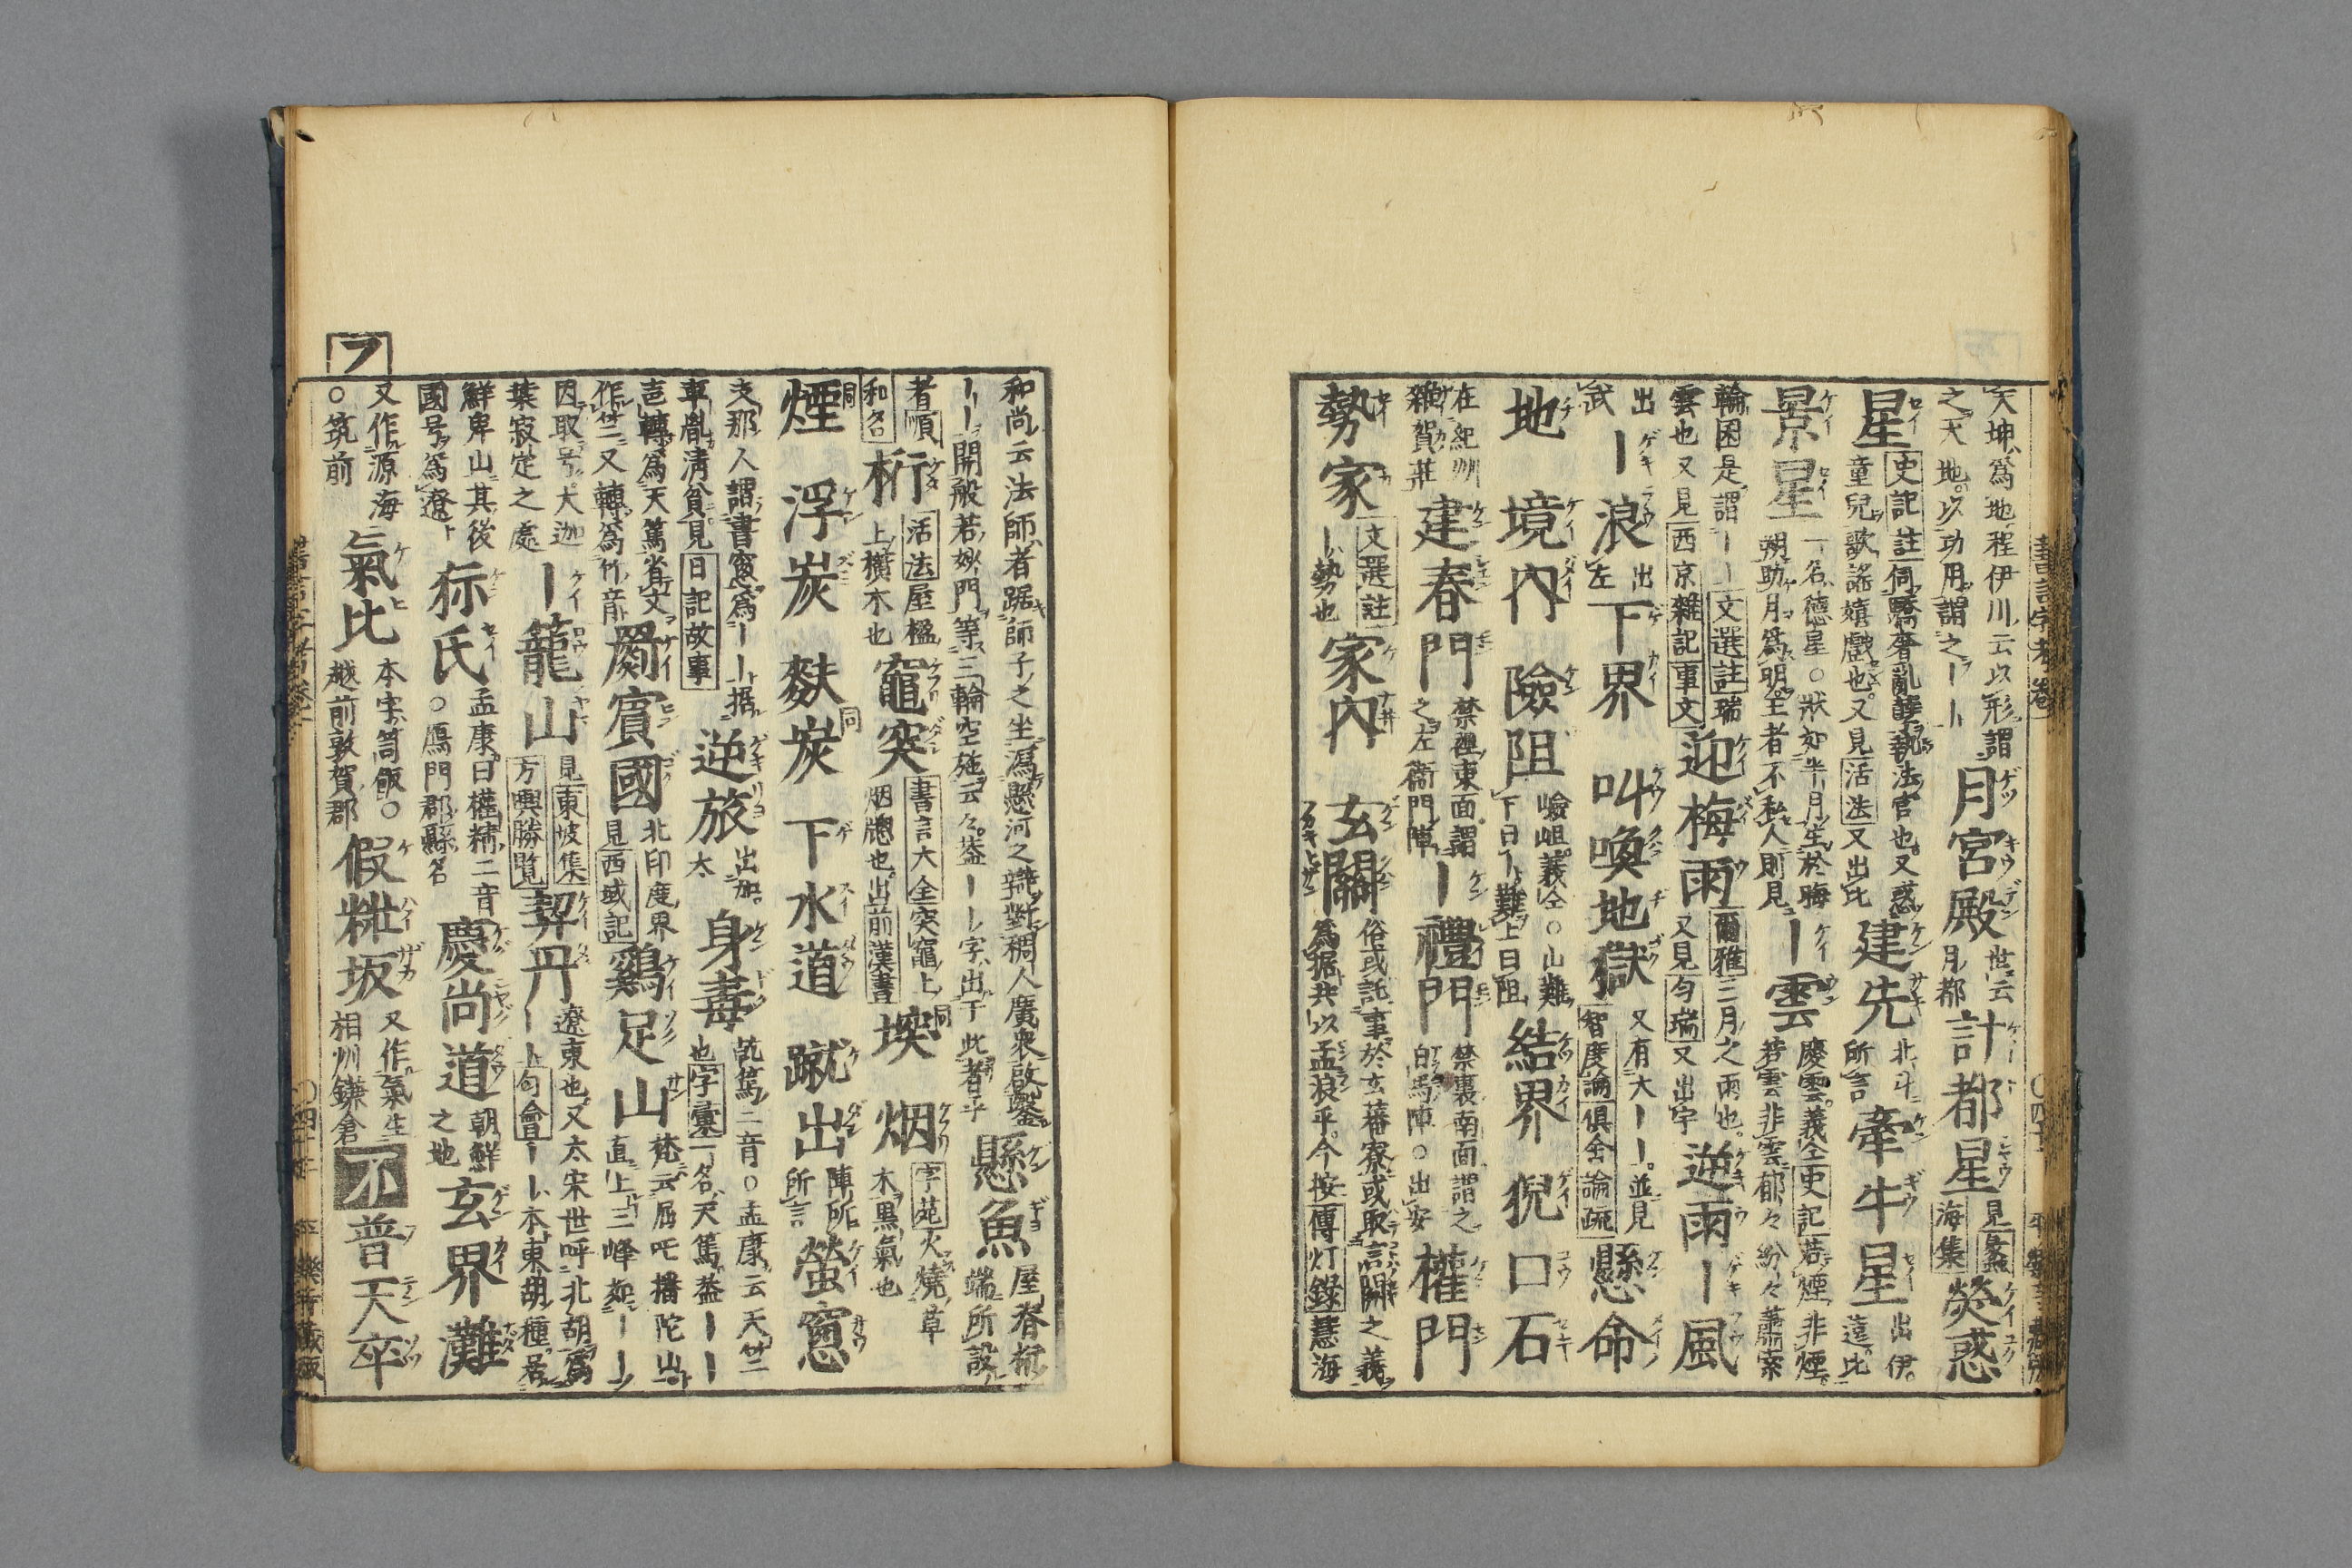 天坤爲地程伊川云以形謂
之天地以功用謂之｜｜
月宮殿
世云
月都
計都星
見蠡
海集
熒惑
星
史記註伺驕奢亂孽執法官也又惑
童兒歌謠嬉戲也又見活法又出比
建先
北斗
所言
牽牛星
出伊
遠比
景星
一名德星○狀如半月生於晦
朔助月爲明王者不私人則見
｜雲
慶雲義仝史記若煙非煙
若雲非雲郁々紛々蕭索
輪囷是謂｜｜文選註瑞
雲也又見西京雜記事文
迎梅雨
爾雅三月之雨也
又見勻瑞又出宇
逆雨
｜風
出
武
｜浪
出
左
下界
叫喚地獄
又有大｜｜並見
智度論俱舍論疏
懸命
地
境內
險阻
嶮岨義仝○山難
下曰｜難上曰阻
結界
猊口石
在紀州
雜賀莊
建春門
禁裡東面謂
之左衞門陣
｜禮門
禁裏南面謂之
白馬陣○出安
權門
勢家
文選註
｜勢也
家內
玄關
俗或託事於玄蕃寮或取言關之義
爲据共以孟浪乎今按傳灯錄慧海
和尚云法師者踞師子之坐瀉懸河之辯對稠人廣衆啟鑿
｜｜開般若妙門等三輪空施云々葢｜｜字出于此者乎
懸魚
屋脊桁
端所設
者順
和名
桁
活法屋楹
上橫木也
竈突
書言大全突竈上
烟牕也出前漢書
堗
同
烟
字苑火燒草
木黑氣也
煙
同
浮炭
麩炭
同
下水道
蹴出
陣所
所言
螢窓
支那人謂書窓爲｜｜据
車胤淸貧見日記故事
逆旅
出加
太
身毒
乾篤二音○孟康云天竺
也字彙一名天篤葢｜｜
言轉爲天篤省文
作竺又轉爲竹音
罽賓國
北印度界
見西域記
鷄足山
梵云屈吒播陀山
直上三峰如｜｜
因取号大迦
葉寂定之處
｜籠山
見東坡集
方輿勝覽
契丹
遼東也又太宋世呼北胡爲
｜｜上勻會｜｜本東胡種居
鮮卑山其後
國号爲遼
狋氏
孟康曰權精二音
○鴈門郡縣名
慶尚道
朝鮮
之地
玄界灘
又作源海
○筑前
氣比
本字笥飯○
越前敦賀郡
假粧坂
又作氣生
相州鎌倉
不
普天
卒
フ